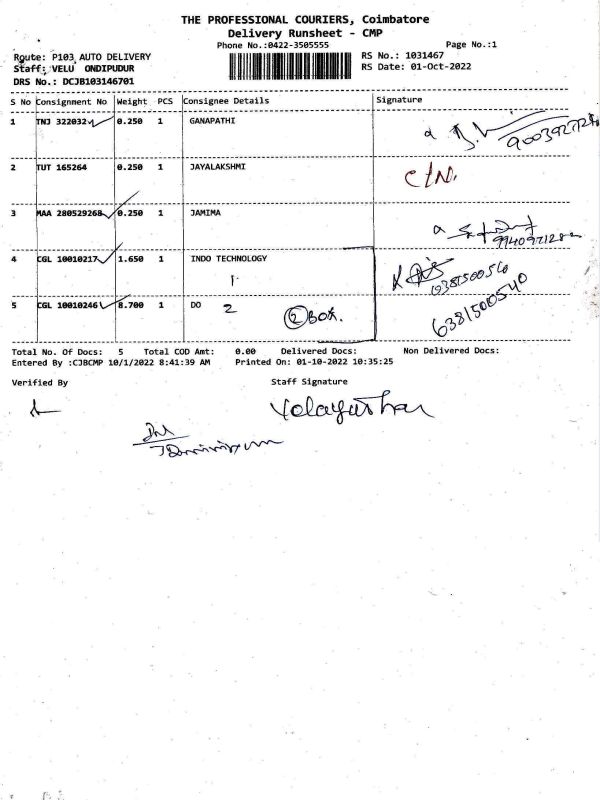 THE PROFESSIONAL COURIERS, Coimbatore
Delivery Runsheet - CMP
Phone No.:0422-3505555 Page No.:1
Route: P103 AUTO DELIVERY RS No.: 1031467
Staff: VELU ONDIPUDUR RS Date: 01-Oct-2022
DRS No.: DCJB103146701
S No Consignment No Weight PCS Consignee Details Signature
1 TNJ 322032 0.250 1 GANAPATHI
2 TUT 165264 0.250 1 JAYALAKSHMI C/N.
3 MAA 280529268 0.250 1 JAMIMA
4 CGL 10010217 1.650 1 INDO TECHNOLOGY
1
5 CGL 10010246 8.700 1 DO 6381500540
2 2 BOX.
Total No. Of Docs: 5 Total COD Amt: 0.00 Delivered Docs: Non Delivered Docs:
Entered By :CJBCMP 10/1/2022 8:41:39 AM Printed On: 01-10-2022 10:35:25
Verified By Staff Signature